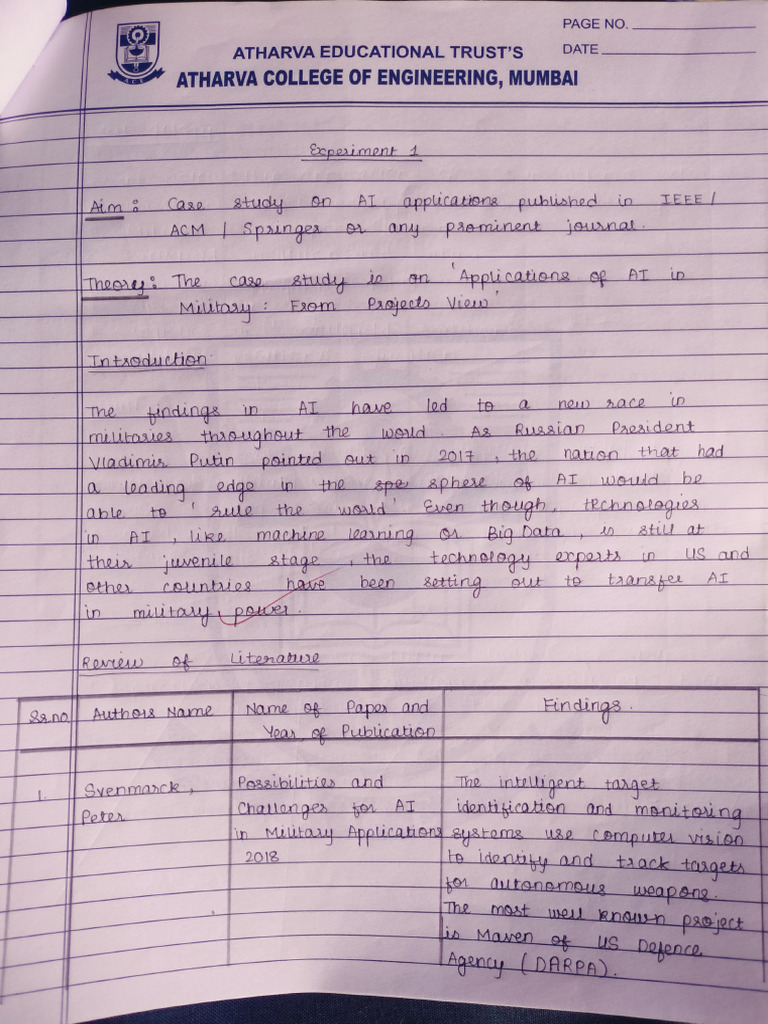 PAGE NO.
DATE
ATHARVA EDUCATIONAL TRUST'S
ATHARVA COLLEGE OF ENGINEERING, MUMBAI
A C E
Experiment 1
Aim : Case study on AI applications published in IEEE /
ACM / Springer or any prominent journal.
Theory : The case study is on 'Applications of AI in
Military : From Projects View'
Introduction
The findings in AI have led to a new race in
militaries throughout the world. As Russian President
Vladimir Putin pointed out in 2017, the nation that had
a leading edge in the spe sphere of AI would be
able to 'rule the world' Even though, technologies
in AI, like machine learning or Big Data, is still at
their juvenile stage, the technology experts in US and
other countries have been setting out to transfer AI
in military power.
Review of Literature
Sr.no Authors Name Name of Paper and Findings.
Year of Publication
1. Svenmarck, Possibilities and The intelligent target
Peter Challenges for AI identification and monitoring
in Military Applications systems use computer vision
2018 to identify and track targets
for autonomous weapons.
The most well known project
is Maven of US Defence
Agency (DARPA).